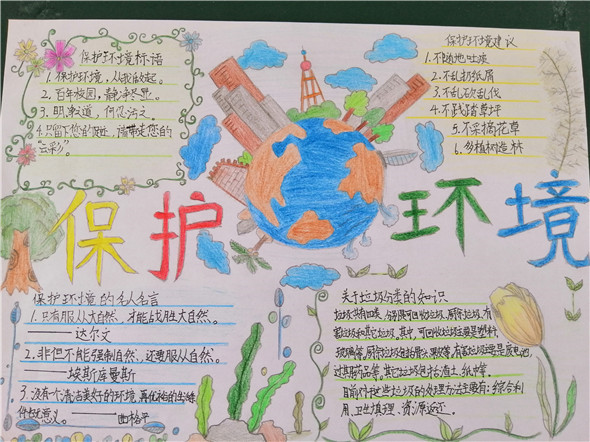 保护环境标语
1. 保护环境,从我做起。
2. 百年校园,静净尽显。
3. 明末道,何忍污文。
4. 只留下您的脚迹,请带走您的
"云彩"。
保护环境建议
1. 不随地吐痰
2. 不乱扔纸屑
3. 不乱砍乱伐
4. 不践踏草坪
5. 不采摘花草
6. 多植树造林
保护环境
保护环境的名人名言
1. 只有服从大自然,才能战胜大自然。
——达尔文
2. 非但不能强制自然,还要服从自然。
——埃斯库曼斯
3. 没有一个清洁美好的环境,再优裕的生活
条件无意义。——曲格平
关于垃圾分类的知识
垃圾可回收垃圾,厨余垃圾,有
害垃圾和其它垃圾。其中,可回收垃圾主要是塑料,
玻璃等,厨余垃圾包括骨头果皮等,有害垃圾主要是废电池,
过期药品等。其它垃圾包括渣土,纸
目前,对这些垃圾的处理方法主要有:综合利
用、卫生填埋、资源返还。